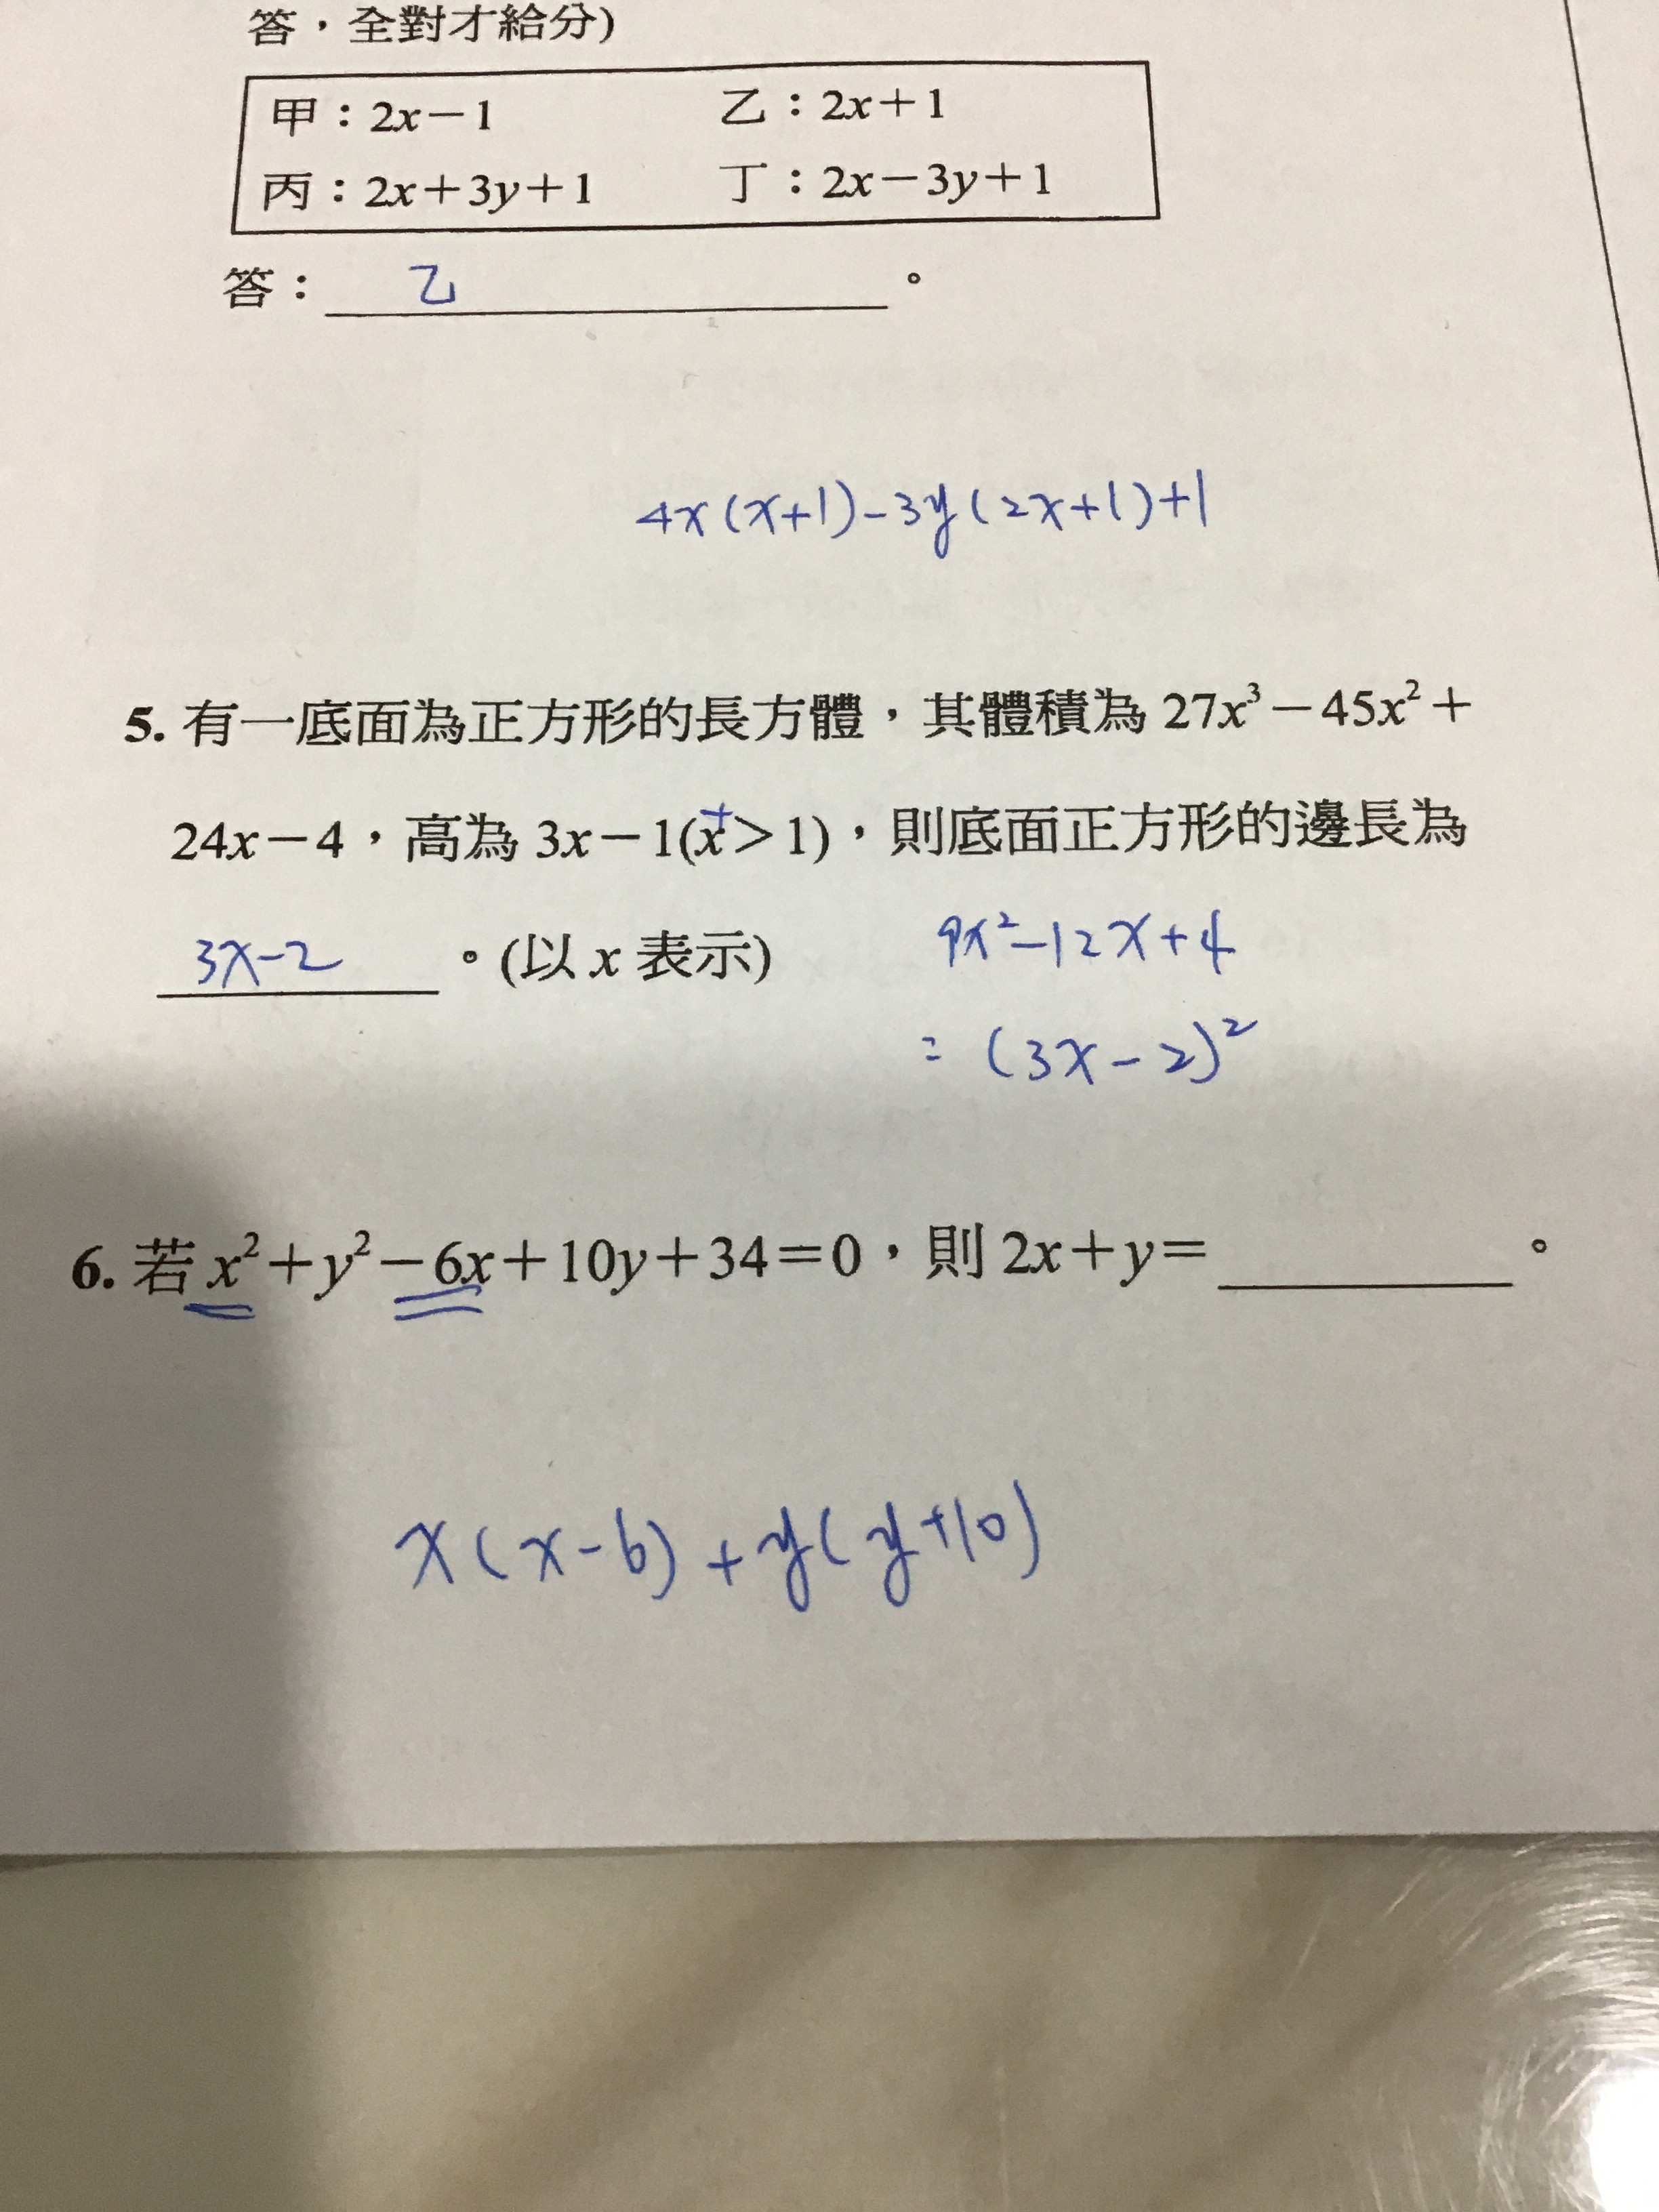 答，全對才給分)
甲：2x－1　乙：2x＋1
丙：2x＋3y＋1　丁：2x－3y＋1
答：乙。
4x(x+1)-3y(2x+1)+1
5. 有一底面為正方形的長方體，其體積為 27x³－45x²＋
24x－4，高為 3x－1(x＞1)，則底面正方形的邊長為
+
3x-2。(以 x 表示)
9x²-12x+4
= (3x-2)²
6. 若 x²＋y²－6x＋10y＋34＝0，則 2x＋y＝＿＿＿。
x(x-6)+y(y+10)